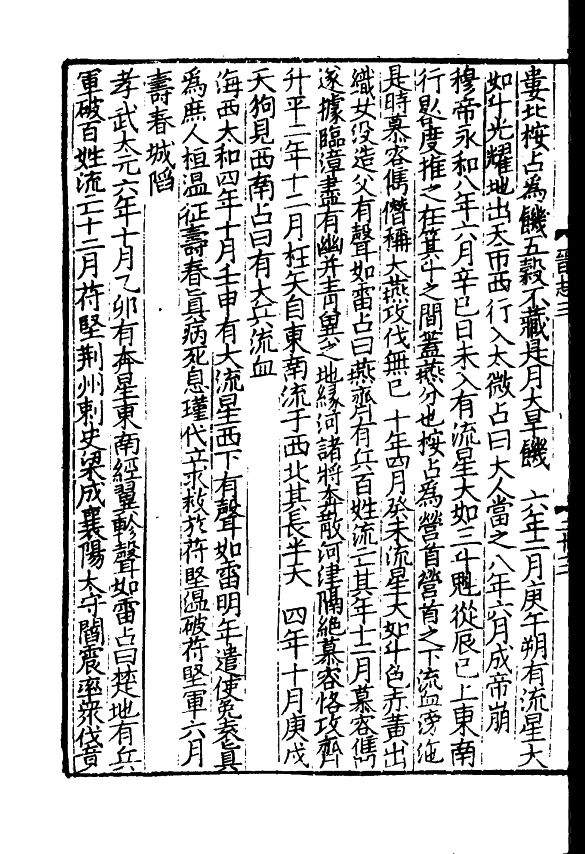 婁北桉占爲饑五穀不藏是月大旱饑　六年二月庚午朔有流星大
如斗光耀地出天市西行入太微占曰大人當之八年六月成帝崩
穆帝永和八年六月辛巳日未入有流星大如三斗魁從辰巳上東南
行晷度推之在箕斗之間蓋燕分也桉占爲營首營首之下流血滂沲
是時慕容儁僭稱大燕攻伐無已　十年四月癸未流星大如斗色赤黃出
織女没造父有聲如雷占曰燕齊有兵百姓流亡其年十二月慕容儁
遂據臨漳盡有幽并靑冀之地緣河諸將奔散河津隔絶慕容恪攻齊
升平二年十二月枉矢自東南流于西北其長半天　四年十月庚戌
天狗見西南占曰有大兵流血
海西太和四年十月壬申有大流星西下有聲如雷明年遣使免袁眞
爲庶人桓温征壽春眞病死息瑾代立求救於苻堅温破苻堅軍六月
壽春城陷
孝武太元六年十月乙卯有奔星東南經翼軫聲如雷占曰楚地有兵
軍破百姓流亡十二月苻堅荆州刺史梁成襄陽太守閻震率衆伐竟
晉志三